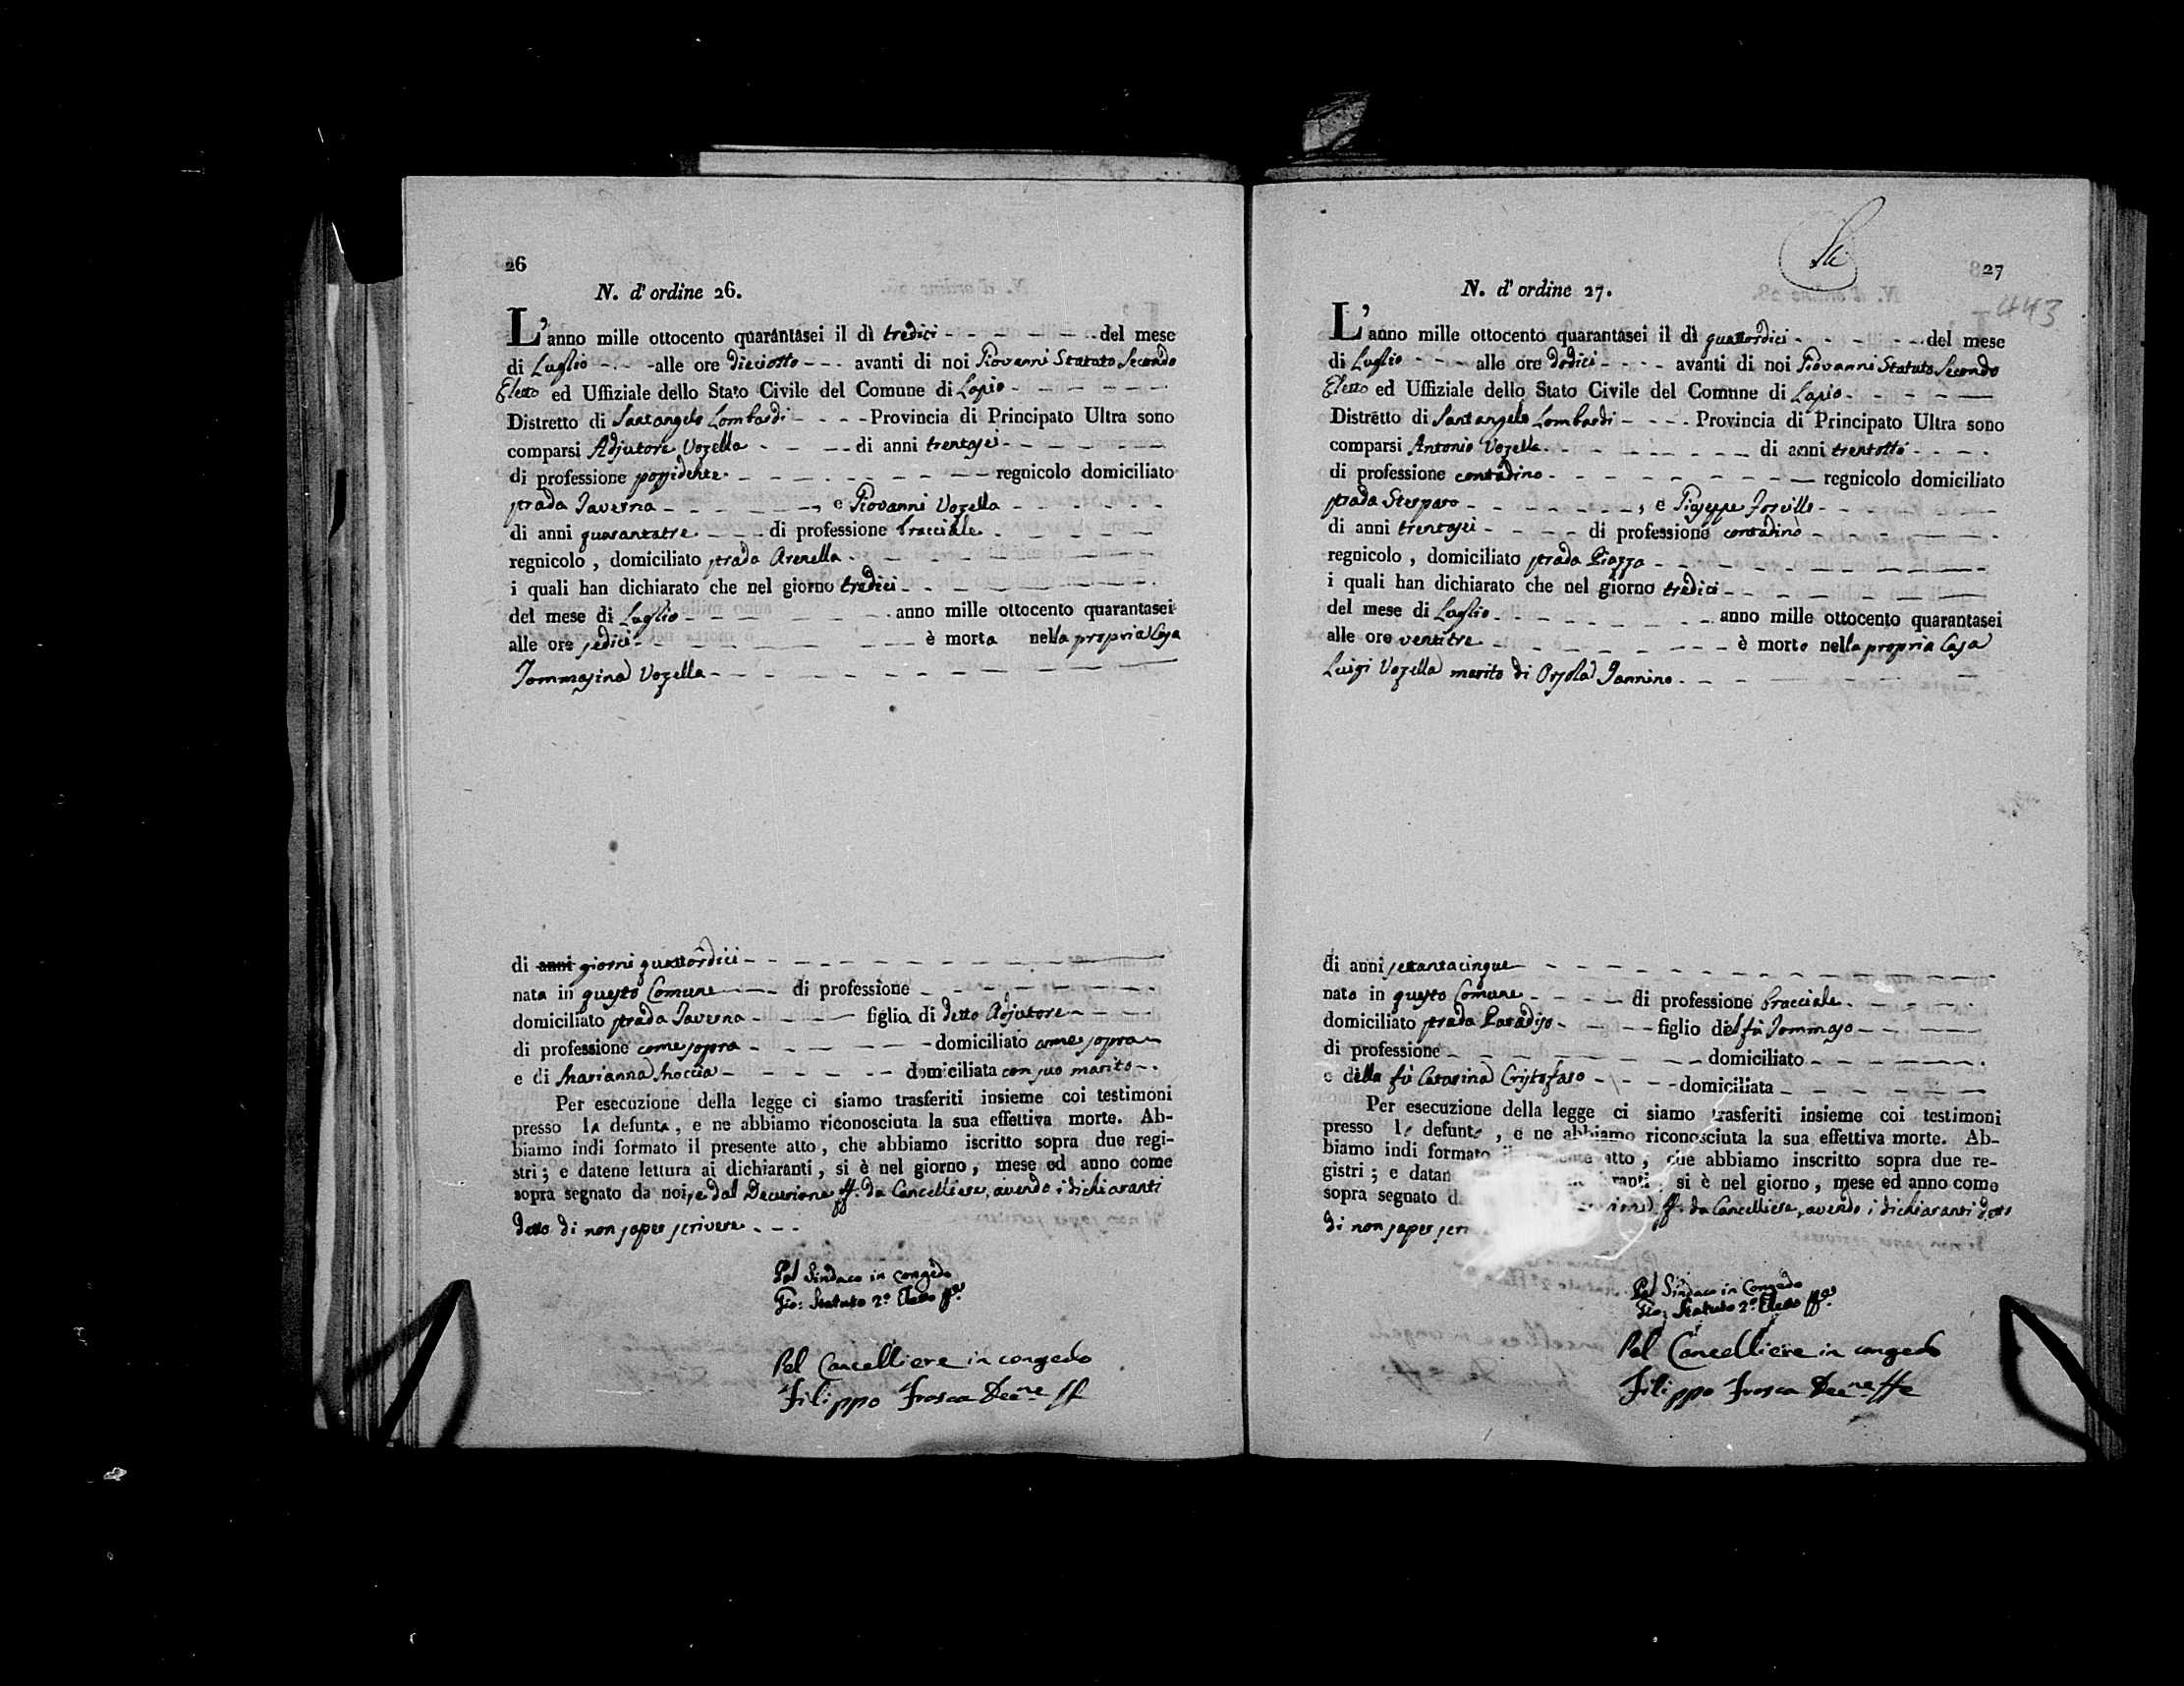 26
N. d' ordine 26.
L'anno mille ottocento quarantasei il dì tredici del mese
di Luglio alle ore dieciotto avanti di noi Giovanni Statuto Secondo
Eletto ed Uffiziale dello Stato Civile del Comune di Lapio
Distretto di Santangelo Lombardi Provincia di Principato Ultra sono
comparsi Adjutore Vozella di anni trentasei
di professione possidente regnicolo domiciliato
strada Taverna, e Giovanni Vozella
di anni quarantatre di professione bracciale
regnicolo, domiciliato strada Arenella
i quali han dichiarato che nel giorno tredici
del mese di Luglio anno mille ottocento quarantasei
alle ore sedici è morta nella propria Casa
Tommasina Vozella
di anni giorni quattordici
nata in questo Comune di professione
domiciliato strada Taverna figlia di detto Adjutore
di professione come sopra domiciliato come sopra
e di Marianna Moccia domiciliata con suo marito.
Per esecuzione della legge ci siamo trasferiti insieme coi testimoni
presso la defunta, e ne abbiamo riconosciuta la sua effettiva morte. Ab-
biamo indi formato il presente atto, che abbiamo iscritto sopra due regi-
stri; e datene lettura ai dichiaranti, si è nel giorno, mese ed anno come
sopra segnato da noi, e dal Decurione ff. da Cancelliere, avendo i dichiaranti
detto di non saper scrivere
Pel Sindaco in congedo
Gio: Statuto 2º Eletto
Pel Cancelliere in congedo
Filippo Frosca Decne ff
27
443
N. d' ordine 27.
L'anno mille ottocento quarantasei il dì quattordici del mese
di Luglio alle ore dodici avanti di noi Giovanni Statuto Secondo
Eletto ed Uffiziale dello Stato Civile del Comune di Lapio
Distretto di Santangelo Lombardi Provincia di Principato Ultra sono
comparsi Antonio Vozella di anni trentotto
di professione contadino regnicolo domiciliato
strada Sterparo, e Giuseppe Forville
di anni trentasei di professione contadino
regnicolo, domiciliato strada Piazza
i quali han dichiarato che nel giorno tredici
del mese di Luglio anno mille ottocento quarantasei
alle ore ventitre è morto nella propria Casa
Luigi Vozella marito di Orsola Iannino
di anni settantacinque
nato in questo Comune di professione bracciale
domiciliato strada Paradiso figlio del fù Tommaso
di professione domiciliato
e della fù Catarina Cristofaro domiciliata
Per esecuzione della legge ci siamo trasferiti insieme coi testimoni
presso lo defunto, e ne abbiamo riconosciuta la sua effettiva morte. Ab-
biamo indi formato atto, che abbiamo inscritto sopra due re-
gistri; e si è nel giorno, mese ed anno come
sopra segnato ff. da Cancelliere, avendo i dichiaranti detto
di non saper
Pel Sindaco in Congedo
Gio: Statuto 2º Eletto
Pel Cancelliere in congedo
Filippo Frosca Decne ff